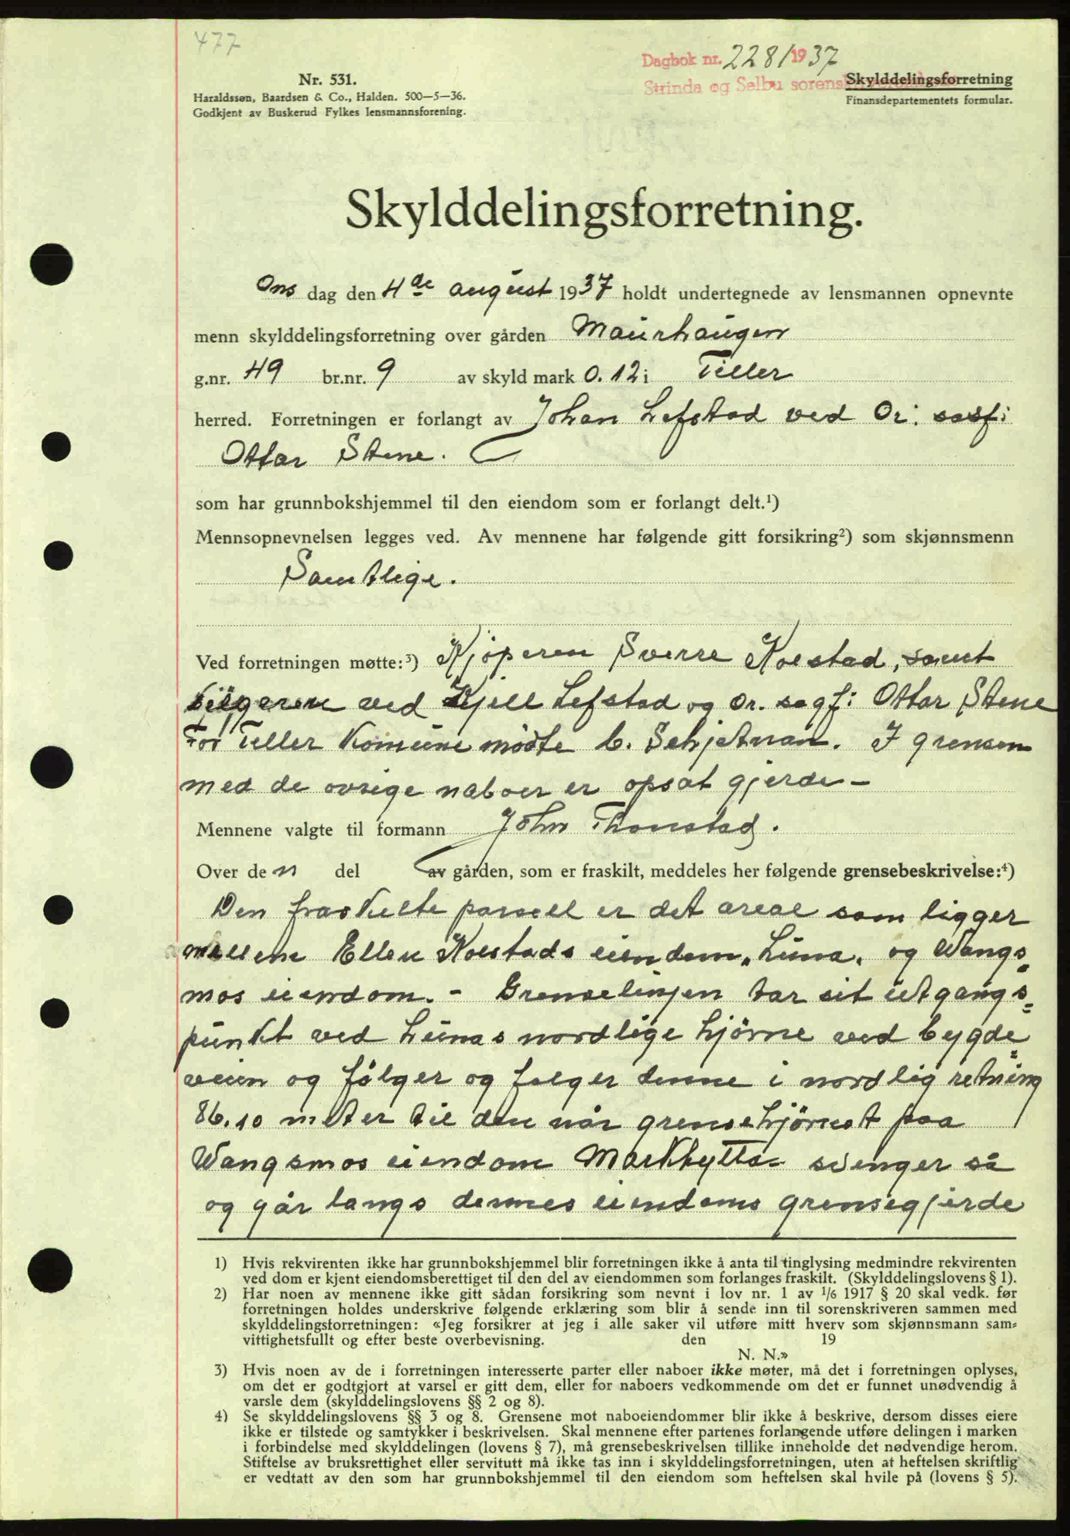 477
Dagbok nr. 2281 1937
Strinda og Selbu sorenskriverembede
Nr. 531.
Haraldssøn, Baardsen & Co., Halden. 500—5—36.
Godkjent av Buskerud Fylkes lensmannsforening.
Skylddelingsforretning
Finansdepartementets formular.
Skylddelingsforretning.
Ons dag den 4de august 1937 holdt undertegnede av lensmannen opnevnte
menn skylddelingsforretning over gården Maurhaugen
g.nr. 49 br.nr. 9 av skyld mark 0.12 i Tiller
herred. Forretningen er forlangt av Johan Lefstad ved Or: sasf:
Ottar Stene.
som har grunnbokshjemmel til den eiendom som er forlangt delt.¹)
Mennsopnevnelsen legges ved. Av mennene har følgende gitt forsikring²) som skjønnsmenn
Samtlige.
Ved forretningen møtte:³) Kjøperen Sverre Kolstad, samt
selgeren ved Kjell Lefstad og Or. sagf: Ottar Stene
For Tiller Komune mødte C. Schjetnan. I grensen
med de øvrige naboer er opsat gjerde —
Mennene valgte til formann John Thonstad.
Over den del av gården, som er fraskilt, meddeles her følgende grensebeskrivelse:⁴)
Den fraskilte parsell er det areal som ligger
mellem Ellen Kolstads eiendom „Luna„ og Wangs=
mos eiendom. - Grenselinjen tar sit utgangs=
punkt ved Lunas nordlige hjørne ved bygde=
veien og følger og følger denne i nordlig retning
86.10 meter til den når grensehjørnet paa
Wangsmos eiendom Markhytta svenger så
og går langs dennes eiendoms grensegjerde
1) Hvis rekvirenten ikke har grunnbokshjemmel blir forretningen ikke å anta til tinglysing medmindre rekvirenten
ved dom er kjent eiendomsberettiget til den del av eiendommen som forlanges fraskilt. (Skylddelingslovens § 1).
2) Har noen av mennene ikke gitt sådan forsikring som nevnt i lov nr. 1 av 1/6 1917 § 20 skal vedk. før
forretningen holdes underskrive følgende erklæring som blir å sende inn til sorenskriveren sammen med
skylddelingsforretningen: «Jeg forsikrer at jeg i alle saker vil utføre mitt hverv som skjønnsmann sam-
vittighetsfullt og efter beste overbevisning. den 19
N. N.»
3) Hvis noen av de i forretningen interesserte parter eller naboer ikke møter, må det i forretningen oplyses,
om det er godtgjort at varsel er gitt dem, eller for naboers vedkommende om det er funnet unødvendig å
varsle dem (skylddelingslovens §§ 2 og 8).
4) Se skylddelingslovens §§ 3 og 8. Grensene mot naboeiendommer blir ikke å beskrive, dersom disses eiere
ikke er tilstede og samtykker i beskrivelsen. Skal mennene efter partenes forlangende utføre delingen i marken
i forbindelse med skylddelingen (lovens § 7), må grensebeskrivelsen tillike inneholde det nødvendige herom.
Stiftelse av bruksrettighet eller servitutt må ikke tas inn i skylddelingsforretningen, uten at heftelsen skriftlig
er vedtatt av den som har grunnbokshjemmel til den eiendom som heftelsen skal hvile på (lovens § 5).